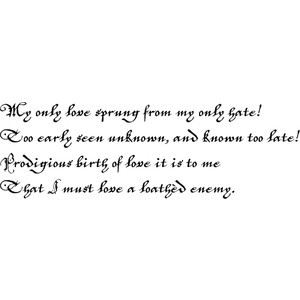 My only love sprung from my only hate!
Too early seen unknown, and known too late!
Prodigious birth of love it is to me
That I must love a loathèd enemy.